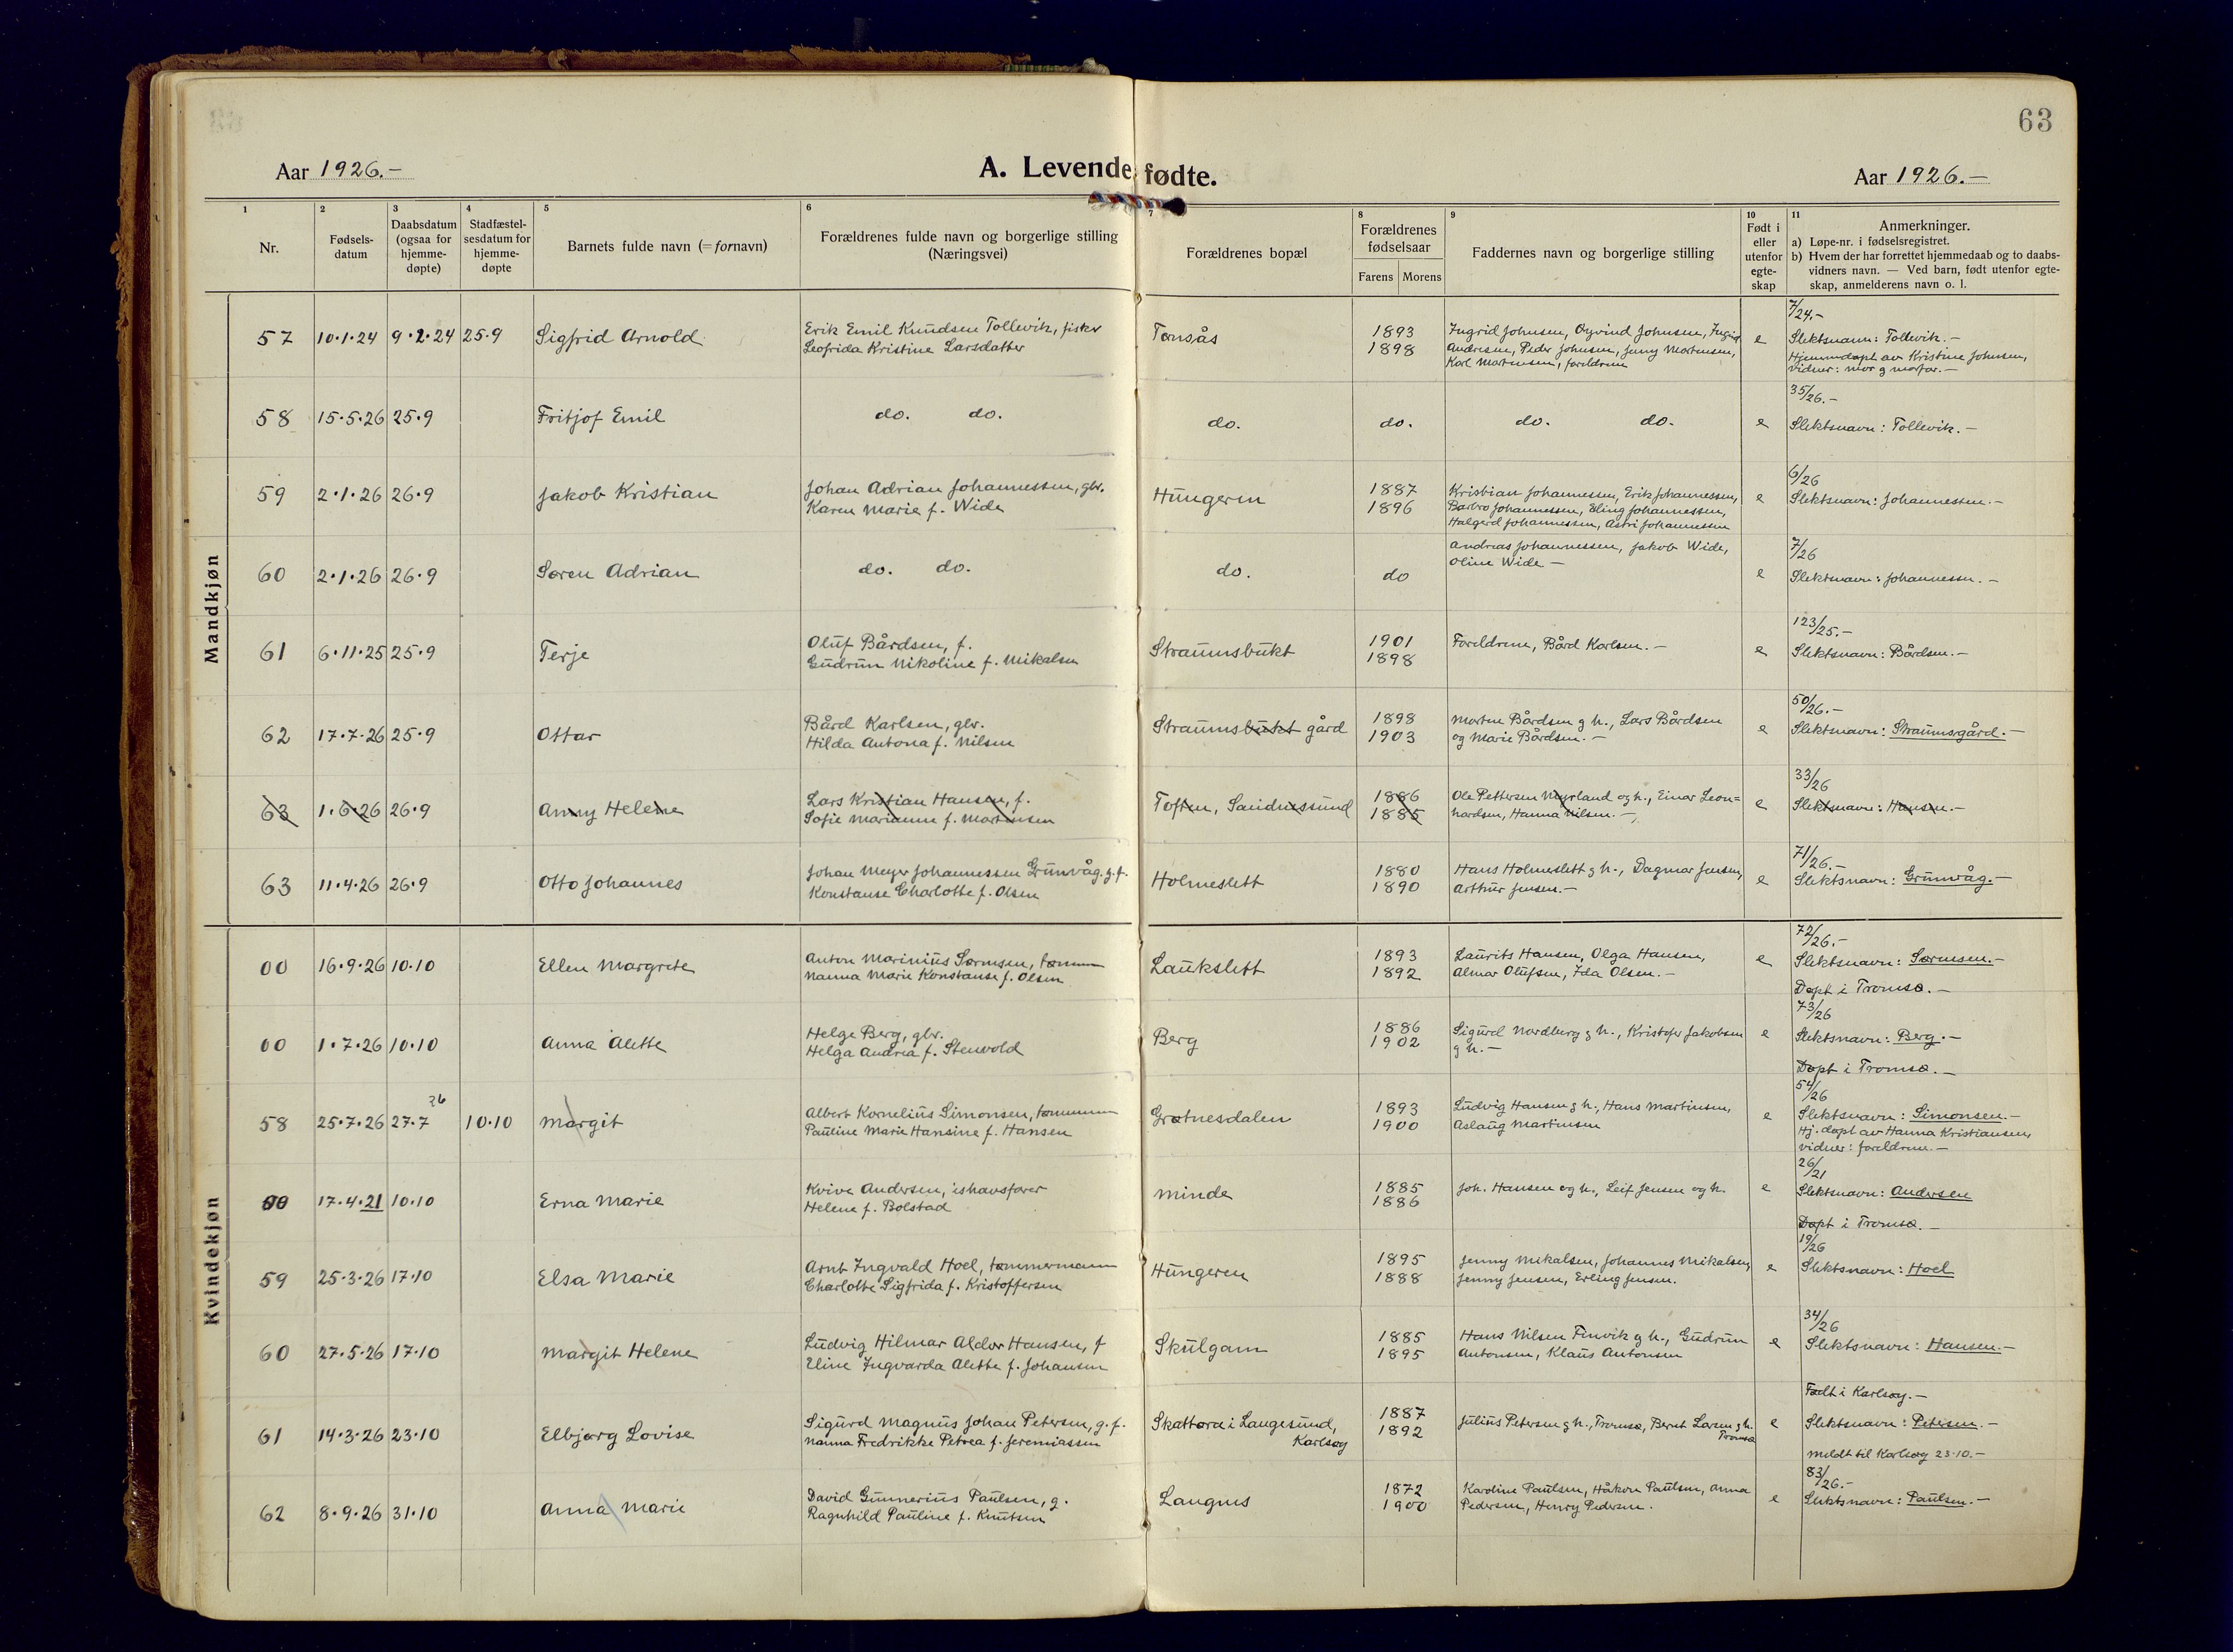 63
Aar 1926.-
A. Levende fødte.
Aar 1926.-
1
Nr.
2
Fødsels-
datum
3
Daabsdatum
(ogsaa for
hjemme-
døpte)
4
Stadfæstel-
sesdatum for
hjemme-
døpte
5
Barnets fulde navn (=fornavn)
6
Forældrenes fulde navn og borgerlige stilling
(Næringsvei)
7
Forældrenes bopæl
8
Forældrenes
fødselsaar
Farens Morens
9
Faddernes navn og borgerlige stilling
10
Født i
eller
utenfor
egte-
skap
11
Anmerkninger.
a) Løpe-nr. i fødselsregistret.
b) Hvem der har forrettet hjemmedaab og to daabs-
vidners navn. — Ved barn, født utenfor egte-
skap, anmelderens navn o. l.
Mandkjøn
57 10.1.24 9.2.24 25.9 Sigfrid Arnold
Erik Emil Knudsen Tollevik, fisker
Leofrida Kristine Larsdatter
Tønsås
1893
1898
Ingrid Johnsen, Øyvind Johnsen, Ingrid
Andresen, Peder Johnsen, Jenny Mortensen,
Karl Mortensen, foreldrene
e
7/24.-
Slektsnavn: Tollevik.-
Hjemmedøpt av Kristine Johnsen,
vidner: mor g morfar.-
58 15.5.26 25.9 Fritjof Emil
do. do.
do.
do.
do. do.
e
35/26.-
Slektsnavn: Tollevik.-
59 2.1.26 26.9 Jakob Kristian
Johan Adrian Johannessen, gbr.
Karen Marie f. Wide
Hungeren
1887
1896
Kristian Johannessen, Erik Johannessen,
Barbro Johannessen, Eling Johannessen,
Halgerd Johannessen, Astri Johannessen
e
6/26
Slektsnavn: Johannessen.-
60 2.1.26 26.9 Søren Adrian
do. do.
do.
do
Andreas Johannessen, Jakob Wide,
Oline Wide -
e
7/26
Slektsnavn: Johannessn.-
61 6.11.25 25.9 Terje
Oluf Bårdsen, f.
Gudrun Nikoline f. Mikalsen
Straumsbukt
1901
1898
Foreldrene, Bård Karlsen.-
e
123/25.-
Slektsnavn: Bårdsen.-
62 17.7.26 25.9 Ottar
Bård Karlsen, gbr.
Hilda Antona f. Nilsen
Straumsbukt gård
1898
1903
Morten Bårdsen g h., Lars Bårdsen
og Marie Bårdsen.-
e
50/26.-
Slektsnavn: Straumsgård.-
63 1.6.26 26.9 Anny Helene
Lars Kristian Hansen, f.
Sofie Marianne f. Mortensen
Toften, Sandnesund
1886
1885
Ole Pettersen Myrland og h., Einar Leon=
hardsen, Hanna Nilsen.-
e
33/26
Slektsnavn: Hansen.-
63 11.4.26 26.9 Otto Johannes
Johan Meyer Johannessen Grunvåg. g.f.
Konstanse Charlotte f. Olsen
Holmeslett
1880
1890
Hans Holmeslett g h., Dagmar Jensen,
Arthur Jensen.-
e
71/26.-
Slektsnavn: Grunvåg.-
Kvindekjøn
00 16.9.26 10.10 Ellen Margrete
Anton Marinius Sørmsen,
Nanna Marie Konstanse f. Olsen
Laukslett
1893
1892
Laurits Hansen, Olga Hansen,
Almar Olufsen, Ida Olsen.-
e
72/26.-
Slektsnavn: Sørmsen.-
Døpt i Tromsø.-
00 1.7.26 10.10 Anna Alette
Helge Berg, gbr.
Helga Andrea f. Stenvold
Berg
1886
1902
Sigurd Nordberg g h., Kristofer Jakobsen
g h.-
e
73/26
Slektsnavn: Berg.-
Døpt i Tromsø.-
58 25.7.26 27.7 26 10.10 Margit
Albert Kornelius Simonsen,
Pauline Marie Hansine f. Hansen
Grøtnesdalen
1893
1900
Ludvig Hansen g h., Hans Martinsen,
Aslaug Martinsen
e
54/26
Slektsnavn: Simonsen.-
Hj. døpt av Hanna Kristiansen,
vidner: foreldrene.-
00 17.4.21 10.10 Erna Marie
Kvive Andersen, ishavsfører
Helene f. Bolstad
Minde
1885
1886
Joh. Hansen og h., Leif Jensen og h.
e
26/21
Slektsnavn: Andersen
Døpt i Tromsø.-
59 25.3.26 17.10 Elsa Marie
Arnt Ingvald Hoel, tømmermann
Charlotte Sigfrida f. Kristoffersen
Hungeren
1895
1888
Jenny Mikalsen, Johannes Mikalsen,
Jenny Jensen, Erling Jensen.
e
19/26
Slektsnavn: Hoel
60 27.5.26 17.10 Margit Helene
Ludvig Hilmar Aldor Hansen, f
Eline Ingvarda Alette f. Johansen
Skulgam
1885
1895
Hans Nilsen Finvik g h., Gudrun
Antonsen, Klaus Antonsen
e
34/26
Slektsnavn: Hansen.-
61 14.3.26 23.10 Elbjørg Lovise
Sigurd Magnus Johan Petersen, g.f.
Nanna Fredrikke Petrea f. Jeremiassen
Skattøra i Langesund,
Karlsøy
1887
1892
Julius Petersen g h., Tromsø, Bernt Larsen g h.
Tromsø
e
Født i Karlsøy.-
Slektsnavn: Petersen.-
Meldt til Karlsøy 23.10.-
62 8.9.26 31.10 Anna Marie
David Gunnerius Paulsen, g.
Ragnhild Pauline f. Knutsen
Langnes
1872
1900
Karoline Paulsen, Håkon Paulsen, Anna
Pedersen, Henry Pedersen.
e
83/26.-
Slektsnavn: Paulsen.-